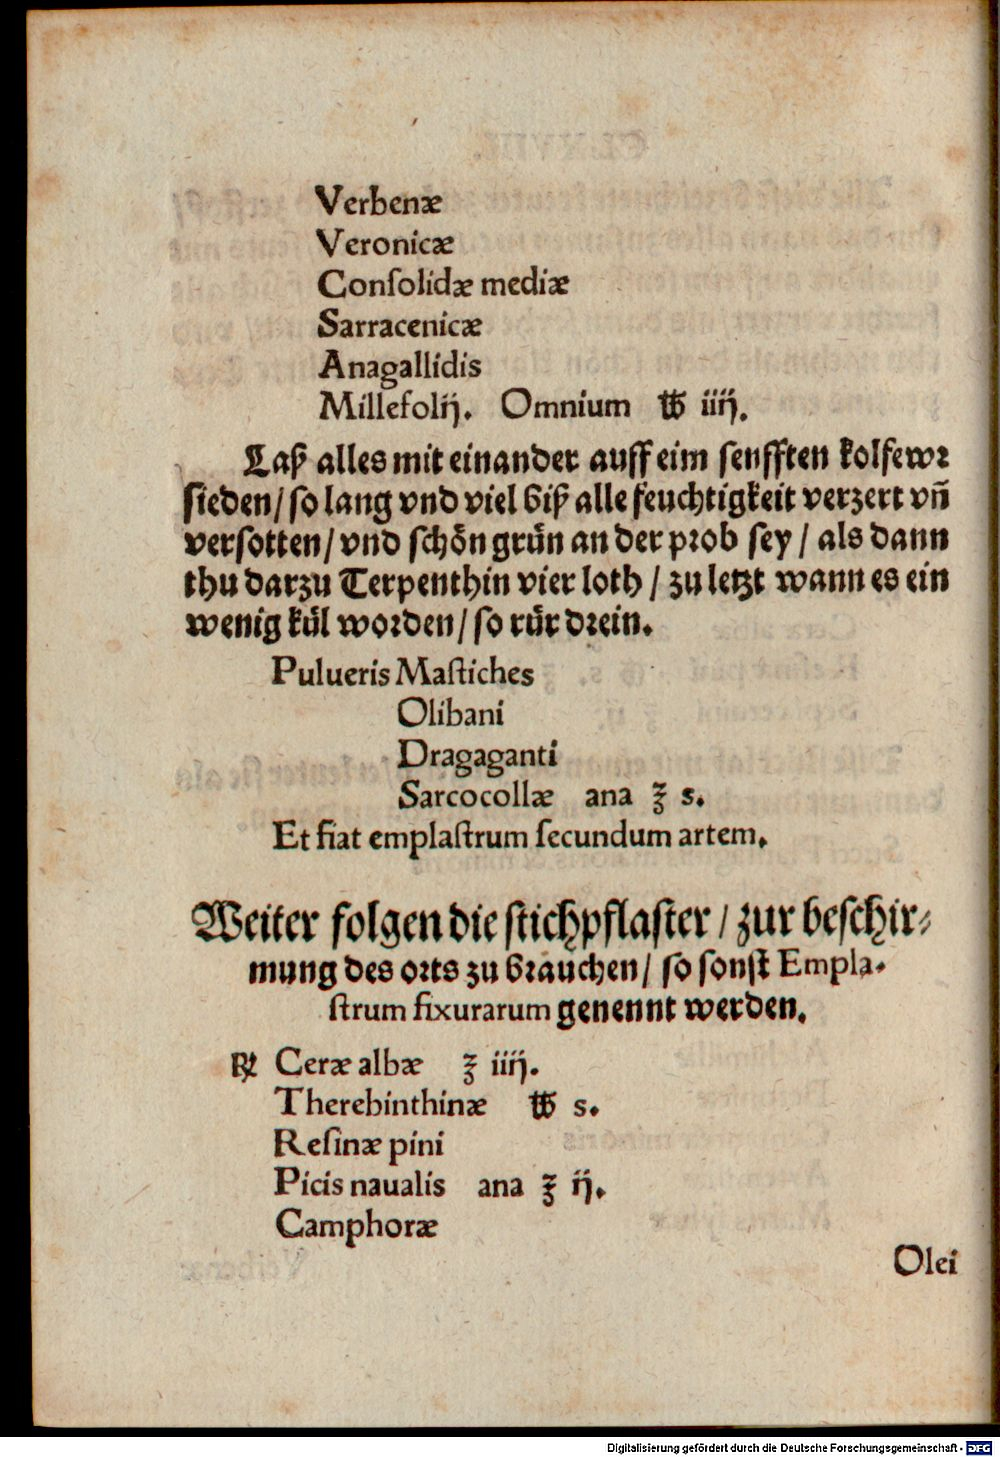 Verbenæ
Veronicæ
Conſolidæ mediæ
Sarracenicæ
Anagallidis
Millefolij. Omnium ℔ iiij.
Laß alles mit einander auff eim ſenfften kolfewꝛ
ſieden/ ſo lang vnd viel biß alle feuchtigkeit verzert vñ
verſotten/ vnd ſchoͤn gruͤn an der pꝛob ſey/ als dann
thu darzu Terpenthin vier loth/ zu letzt wann es ein
wenig kuͤl woꝛden/ ſo ruͤr dꝛein.
Pulueris Maſtiches
Olibani
Dragaganti
Sarcocollæ ana ℥ s.
Et fiat emplaſtrum ſecundum artem.
Weiter folgen die ſtichpflaſter/ zur beſchir⸗
mung des oꝛts zu bꝛauchen/ ſo ſonſt Empla-
ſtrum fixurarum genennt werden.
℞ Ceræ albæ ℥ iiij.
Therebinthinæ ℔ s.
Reſinæ pini
Picis naualis ana ℥ ij.
Camphoræ
Olei
Digitalisierung gefördert durch die Deutsche Forschungsgemeinschaft - DFG